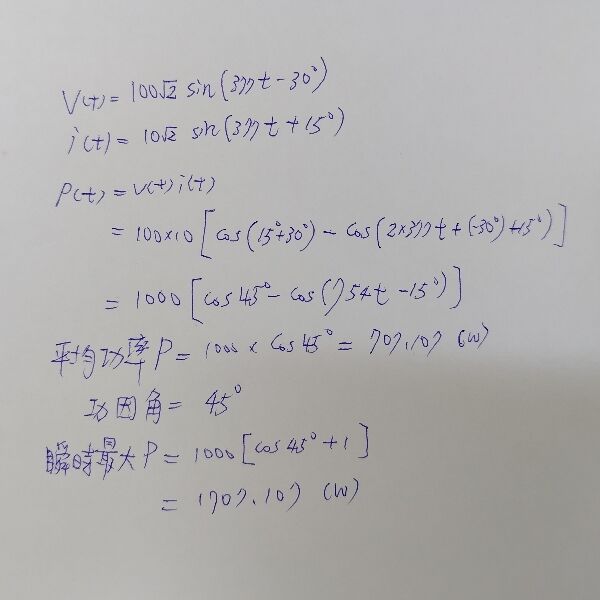 V(t) = 100√2 sin(377t - 30°)
i(t) = 10√2 sin(377t + 15°)
P(t) = v(t) i(t)
= 100×10 [cos(15°+30°) - cos(2×377t + (-30°) + 15°)]
= 1000 [cos 45° - cos(754t - 15°)]
平均功率 P = 1000 × cos 45° = 707.107 (W)
功因角 = 45°
瞬時最大 P = 1000 [cos 45° + 1]
= 1707.107 (W)